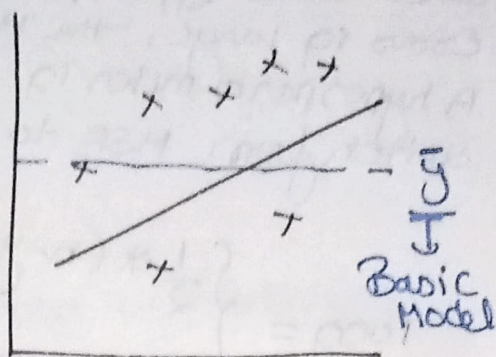 ȳ
Basic
Model